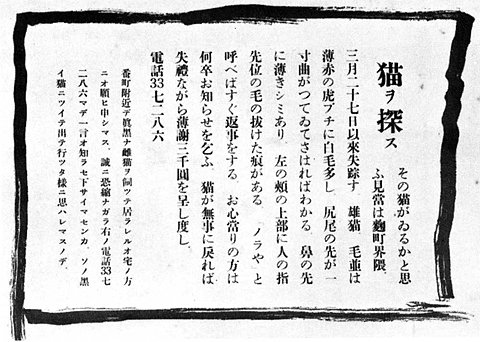 猫ヲ探ス
その猫がゐるかと思
ふ見當は麴町界隈.
三月二十七日以來失踪す 雄猫 毛並は
薄赤の虎ブチに白毛多し 尻尾の先が一
寸曲がつてゐてさはればわかる 鼻の先
に薄きシミあり 左の頰の上部に人の指
先位の毛の拔けた痕がある 「ノラや」と
呼べばすぐ返事をする お心當りの方は
何卒お知らせを乞ふ 猫が無事に戻れば
失禮ながら薄謝三千圓を呈し度し.
電話33七二八六
番町附近デ眞黒ナ雌猫ヲ飼ツテ居ラレルオ宅ノ方
ニオ願ヒ申シマス、誠ニ恐縮ナガラ右ノ電話33七
二八六マデ一言オ知ラセ下サイマセンカ、ソノ黒
イ猫ニツイテ出テ行ツタ様ニ思ハレマスノデ.